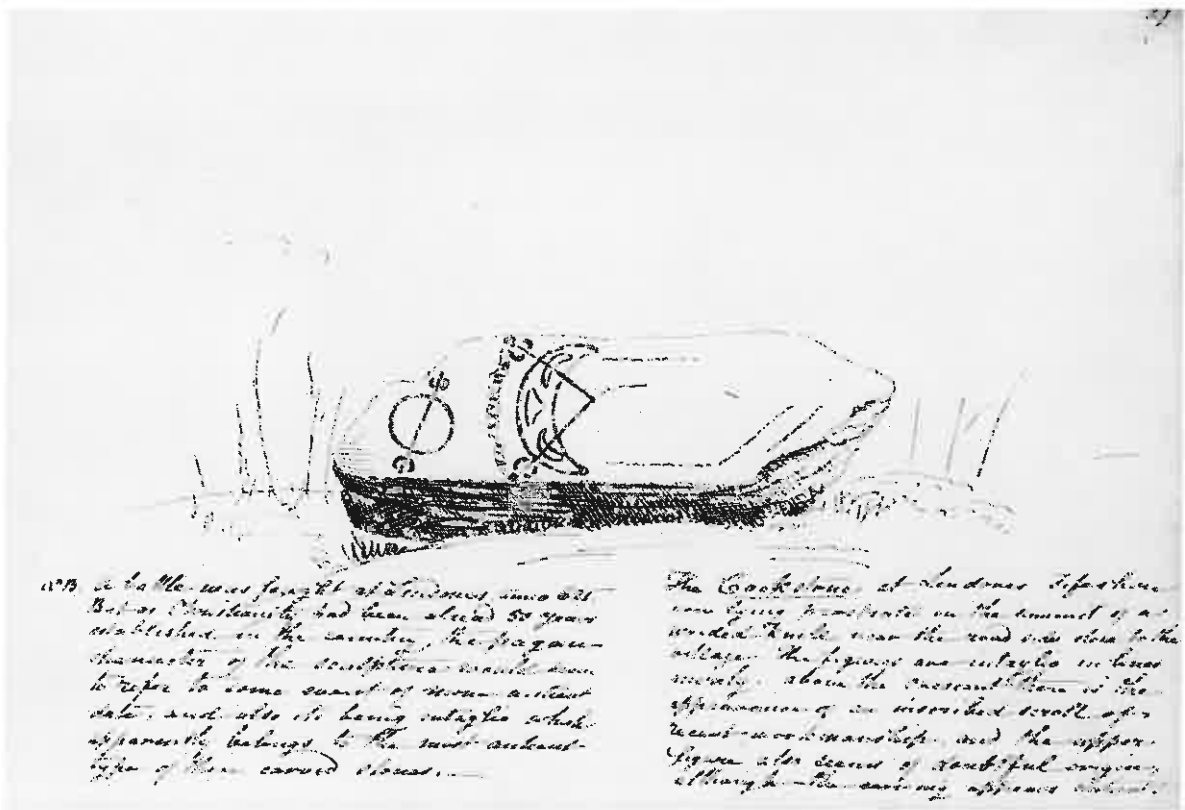 A battle was fought at Lindores
But as Christianity had been already 50 years
established in the country the pagan
character of the sculpture would seem
to refer to some event of more ancient
date, and also its being intaglio which
apparently belongs to the most ancient
type of these carved stones.
The Cockstone at Lindores Fifeshire
now lying prostrate on the summit of a
wooded knole near the road side close to the
village. The figures are intaglio in lines
merely. above the crescent there is the
appearance of an inscribed scroll of
recent workmanship and the upper
figure also seems of doubtful origin
although the carving appears